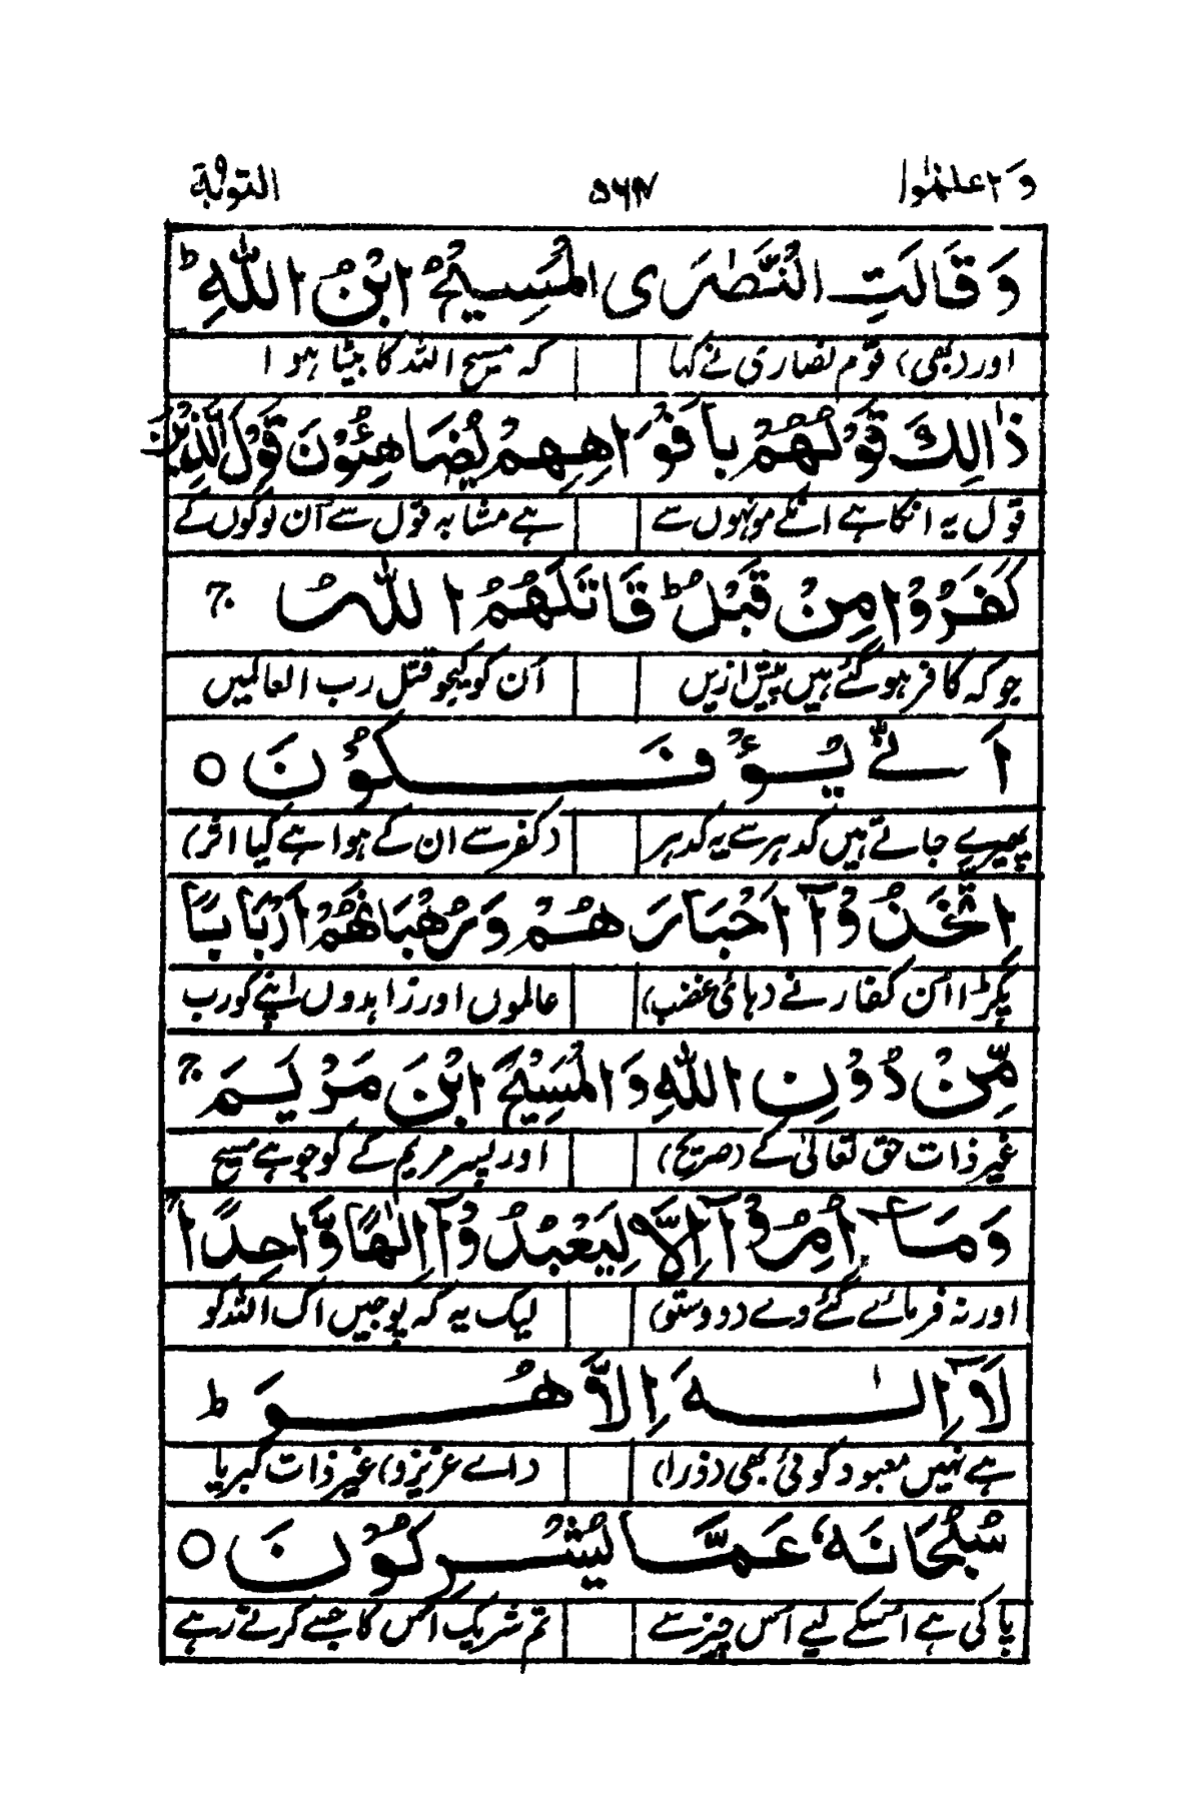 وَاعلموا ۵۶۷ التوبة
وَقَالَتِ النَّصٰرَى الْمَسِيحُ ابْنُ اللّٰهِ ط
اور (بھی) قوم نصاری نے کہا کہ مسیح اللہ کا بیٹا ہوا
ذٰالِكَ قَوْلُهُمْ بِاَفْوَاهِهِمْ يُضَاهِئُوْنَ قَوْلَ الَّذِيْنَ
قول یہ انکا ہے انکے مونہوں سے ہے مشابہ قول سے اُن لوگوں کے
كَفَرُوْا مِنْ قَبْلُ ط قَاتَلَهُمُ اللّٰهُ ج
جو کہ کافر ہو گئے ہیں پیش ازیں اُن کو کیجو قتل رب العالمیں
اَنّٰے يُؤْفَكُوْنَ ○
پھیرے جاتے ہیں کدہر سے یہ کدہر (کفر سے ان کے ہوا ہے کیا اثر)
اِتَّخَذُوْآ اَحْبَارَهُمْ وَرُهْبَانَهُمْ اَرْبَابًا
پکڑا اُن کفار نے (ہائی غضب) عالموں اور زاہدوں اپنے کو رب
مِّنْ دُوْنِ اللّٰهِ وَالْمَسِيْحَ ابْنَ مَرْيَمَ ج
غیر ذات حق تعالیٰ کے (صریح) اور پسر مریم کے کو جو ہے مسیح
وَمَآ اُمِرُوْآ اِلَّا لِيَعْبُدُوْآ اِلٰهًا وَّاحِدًا ج
اور نہ فرمائے گئے وے (دوستو) لیک یہ کہ پوجیں اک اللہ کو
لَآ اِلٰهَ اِلَّا هُوَ ط
ہے نہیں معبود کوئی بھی (ذرا) (اے عزیزو) غیر ذات کبریا
سُبْحَانَهٗ عَمَّا يُشْرِكُوْنَ ○
پاکی ہے اسکے لیے اس چیز سے تم شریک اُس کا جسے کرتے رہے